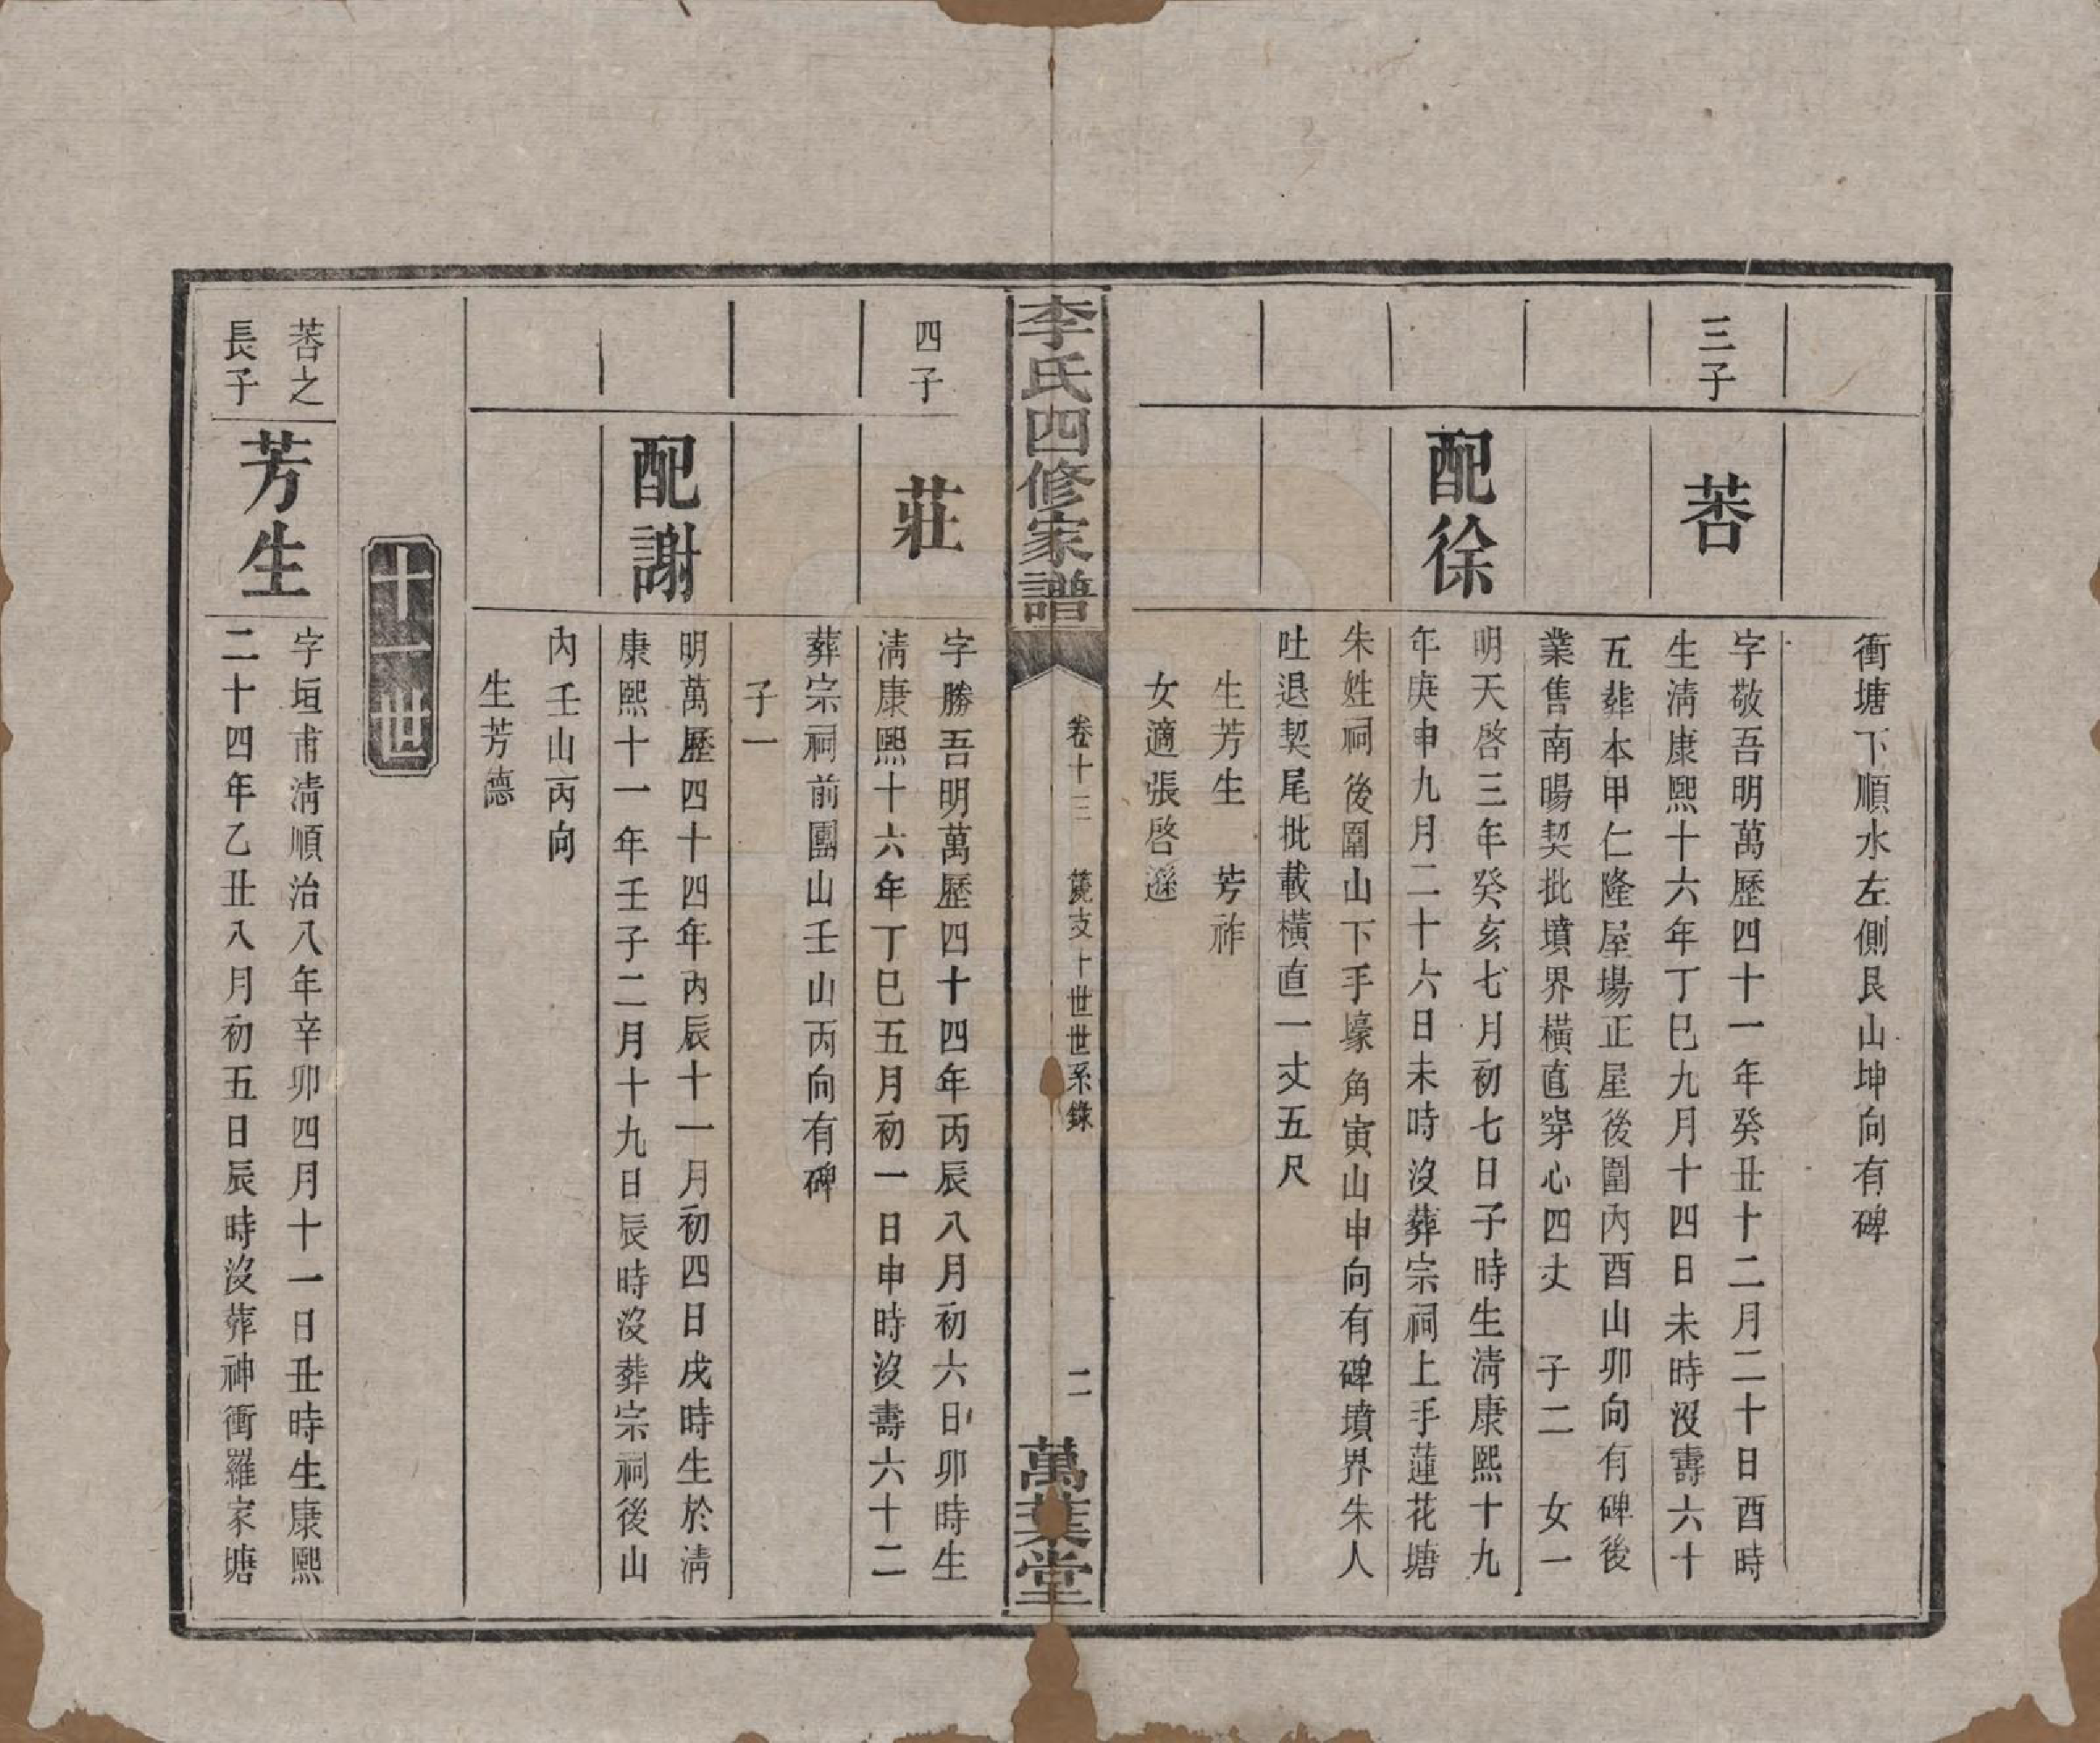 衝塘下順水左側艮山坤向有碑
三子
莕
字敬吾明萬歷四十一年癸丑十二月二十日酉時
生淸康熙十六年丁巳九月十四日未時沒壽六十
五葬本甲仁隆屋場正屋後圍內酉山卯向有碑後
業售南暘契批墳界橫直穿心四丈　子二　女一
配徐
明天啓三年癸亥七月初七日子時生淸康熙十九
年庚申九月二十六日未時沒葬宗祠上手蓮花塘
朱姓祠後圍山下手壕角寅山申向有碑墳界朱人
吐退契尾批載橫直一丈五尺
生芳生　芳祚
女適張啓遜
李氏四修家譜
卷十三　簴支十世世系錄
二
萬葉堂
四子
莊
字勝吾明萬歷四十四年丙辰八月初六日卯時生
淸康熙十六年丁巳五月初一日申時沒壽六十二
葬宗祠前團山壬山丙向有碑
子一
配謝
明萬歷四十四年丙辰十一月初四日戌時生於淸
康熙十一年壬子二月十九日辰時沒葬宗祠後山
內壬山丙向
生芳德
十一世
莕之
長子
芳生
字垣甫淸順治八年辛卯四月十一日丑時生康熙
二十四年乙丑八月初五日辰時沒葬神衝羅家塘